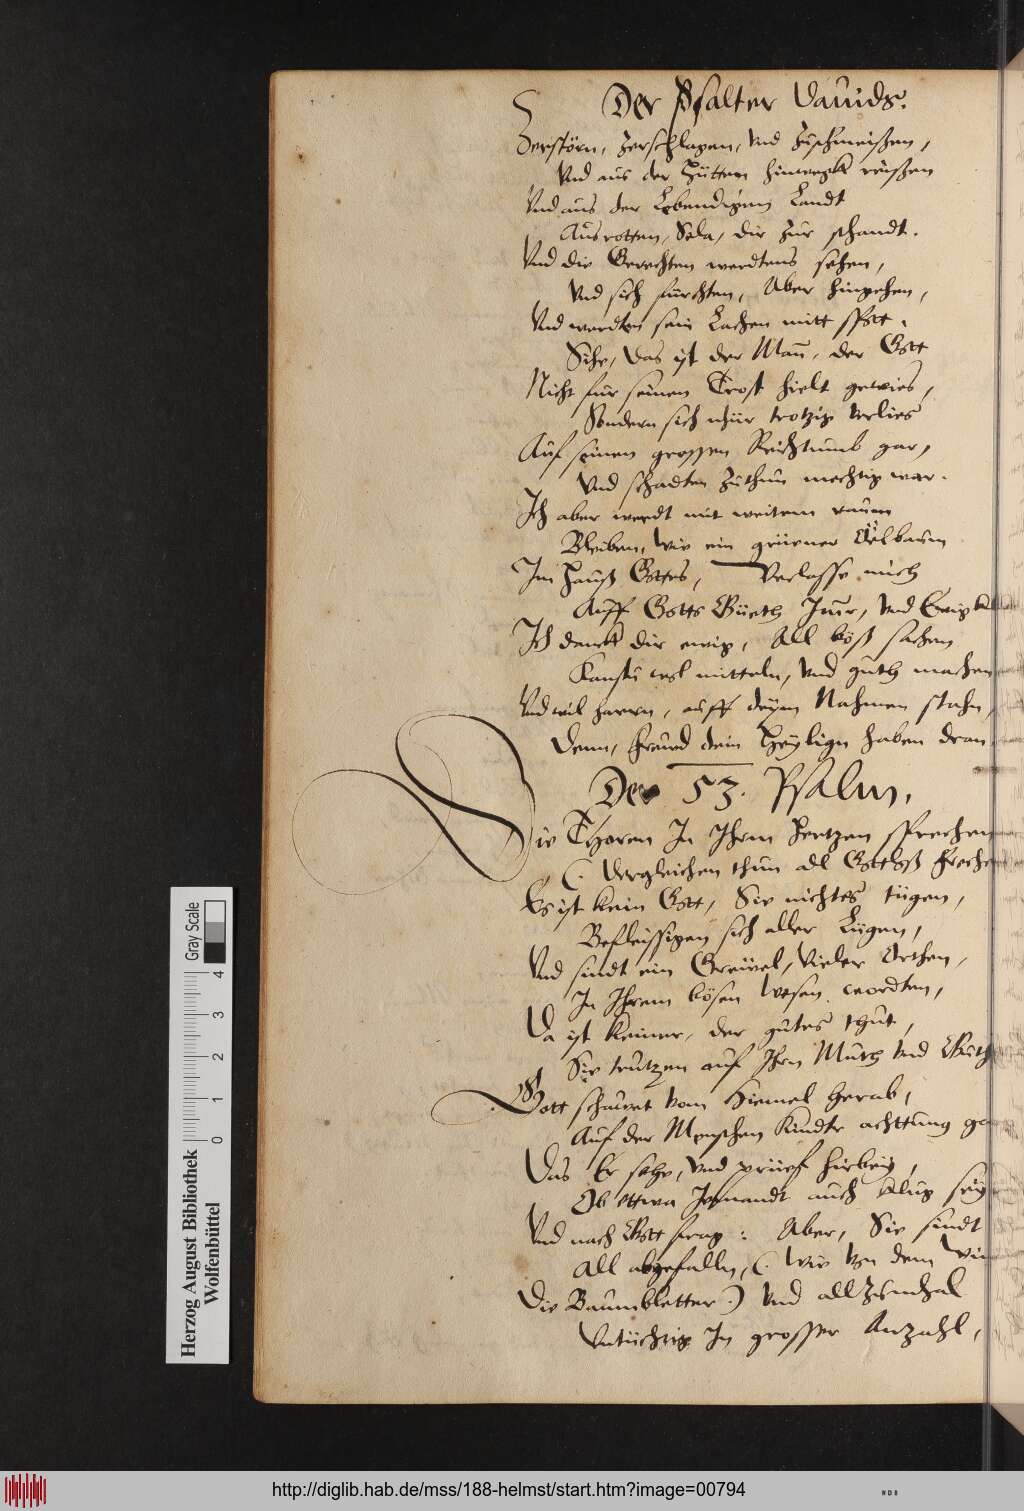 Der Psalter Dauids.
Zerstörn, zerschlagen, vnd zuschmeißen,
Vnd aus der Hütten hinwegk reißen
Vnd aus der Lebendigen Landt
Ausrotten, Sela, dir zur schandt.
Vnd die Gerechten werdtens sehen,
Vnd sich fürchten, Aber hingehen,
Vnd werdten sein Lachen mitt spott.
Sihe, das ist der Mañ, der Gott
Nicht für seinen Trost hielt gewies,
Sondern sich nhur trotzig verlies
Auf seinen grossen Reichtumb gar,
Vnd schadten zuthun mechtig war.
Ich aber werdt mit weitem raum
Bleiben, wie ein grüener Öelbaum
Im Hauß Gottes, Verlasse mich
Auff Gotts Güeth Imer, vnd Ewig
Ich danck dir ewig, All böß sachen
Kanstu wol mitteln, vnd guth machen
Vnd wil harrn, auff deyn Nahmen stahn,
Denn, freud dein Heylign haben dran
Der 53. Psalm.
Die Thoren In Ihrm Hertzen sprechen
(Dergleichen thun all Gottloß frechen
Es ist kein Gott, Sie nichtes tügen,
Befleissigen sich aller Lügen,
Vnd sindt ein Grewel, vieler Orthen,
In Ihrem bösen Wesen wordten,
Da ist keiner, der gutes thut,
Sie trutzen auf Ihrn Muth vnd Guth
Gott schawet vom Himel herab,
Auf der Menschen Kindtr achttung
Das Er sehe, vnd prüef hirbey,
Ob ettwa Jemandt auch klug sey
Vnd nach Gott frag: Aber, Sie sindt
All abgefalln, (Wie von dem
Die Baumbletter) Vnd allzumhal
Vntüchtig In grosser Anzahl,
Herzog August Bibliothek
Wolfenbüttel
Gray Scale
0 1 2 3 4
http://diglib.hab.de/mss/188-helmst/start.htm?image=00794